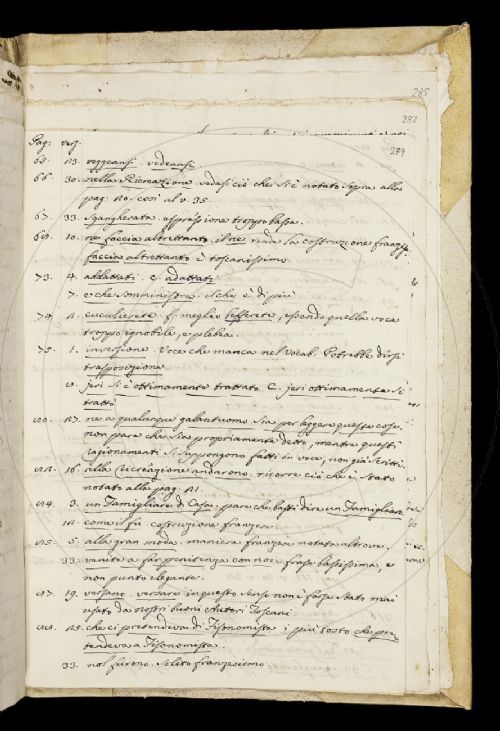 285
282
279
Pag: verj.
65. 13. veggeansi. vedeansi.
66. 30. nella Ricreazione vedasi ciò che si è notato sopra alla
pag. 10. così al v. 35.
67. 33. Sgangherata. espressione troppo bassa.
69. 10. ne faccia altrettanto. il ne rende la costruzione franzese
faccia altrettanto è toscanissimo.
73. 4. addattati. C. adattati
7. e che somministra. il che è di più
74. cuculierete. f. meglio befferete, essendo quella voce
troppo ignobile, e plebea.
75. 1. inversione. Voce che manca nel Vocab. Potrebbe dirsi
trasposizione.
9. jeri si è ottimamente trattato C. jeri ottimamente si
trattò
ne a qualunque galantuomo sia per leggere queste cose.
non pare che sia propriamente detto, mentre questi
ragionamenti si suppongono fatti in voce, non già scritti.
16. alla Ricreazione andarono. ricorre ciò che è stato
notato alla pag.
3. un Famigliare di Casa. pare che basti dire un Famigliare
come il fù costruzione franzese.
5. alla gran moda. maniera franzese notata altrove.
33. venite a far penitenza con noi. frase bassissima, e
non punto elegante.
19. versano. versare in questo senso non è forse stato mai
usato da nostri buoni Autori Toscani.
che ci pretendeva di Fisonomista i più tosto che pre-
tendeva a Fisonomista.
33. nol furono. Solito franzesismo